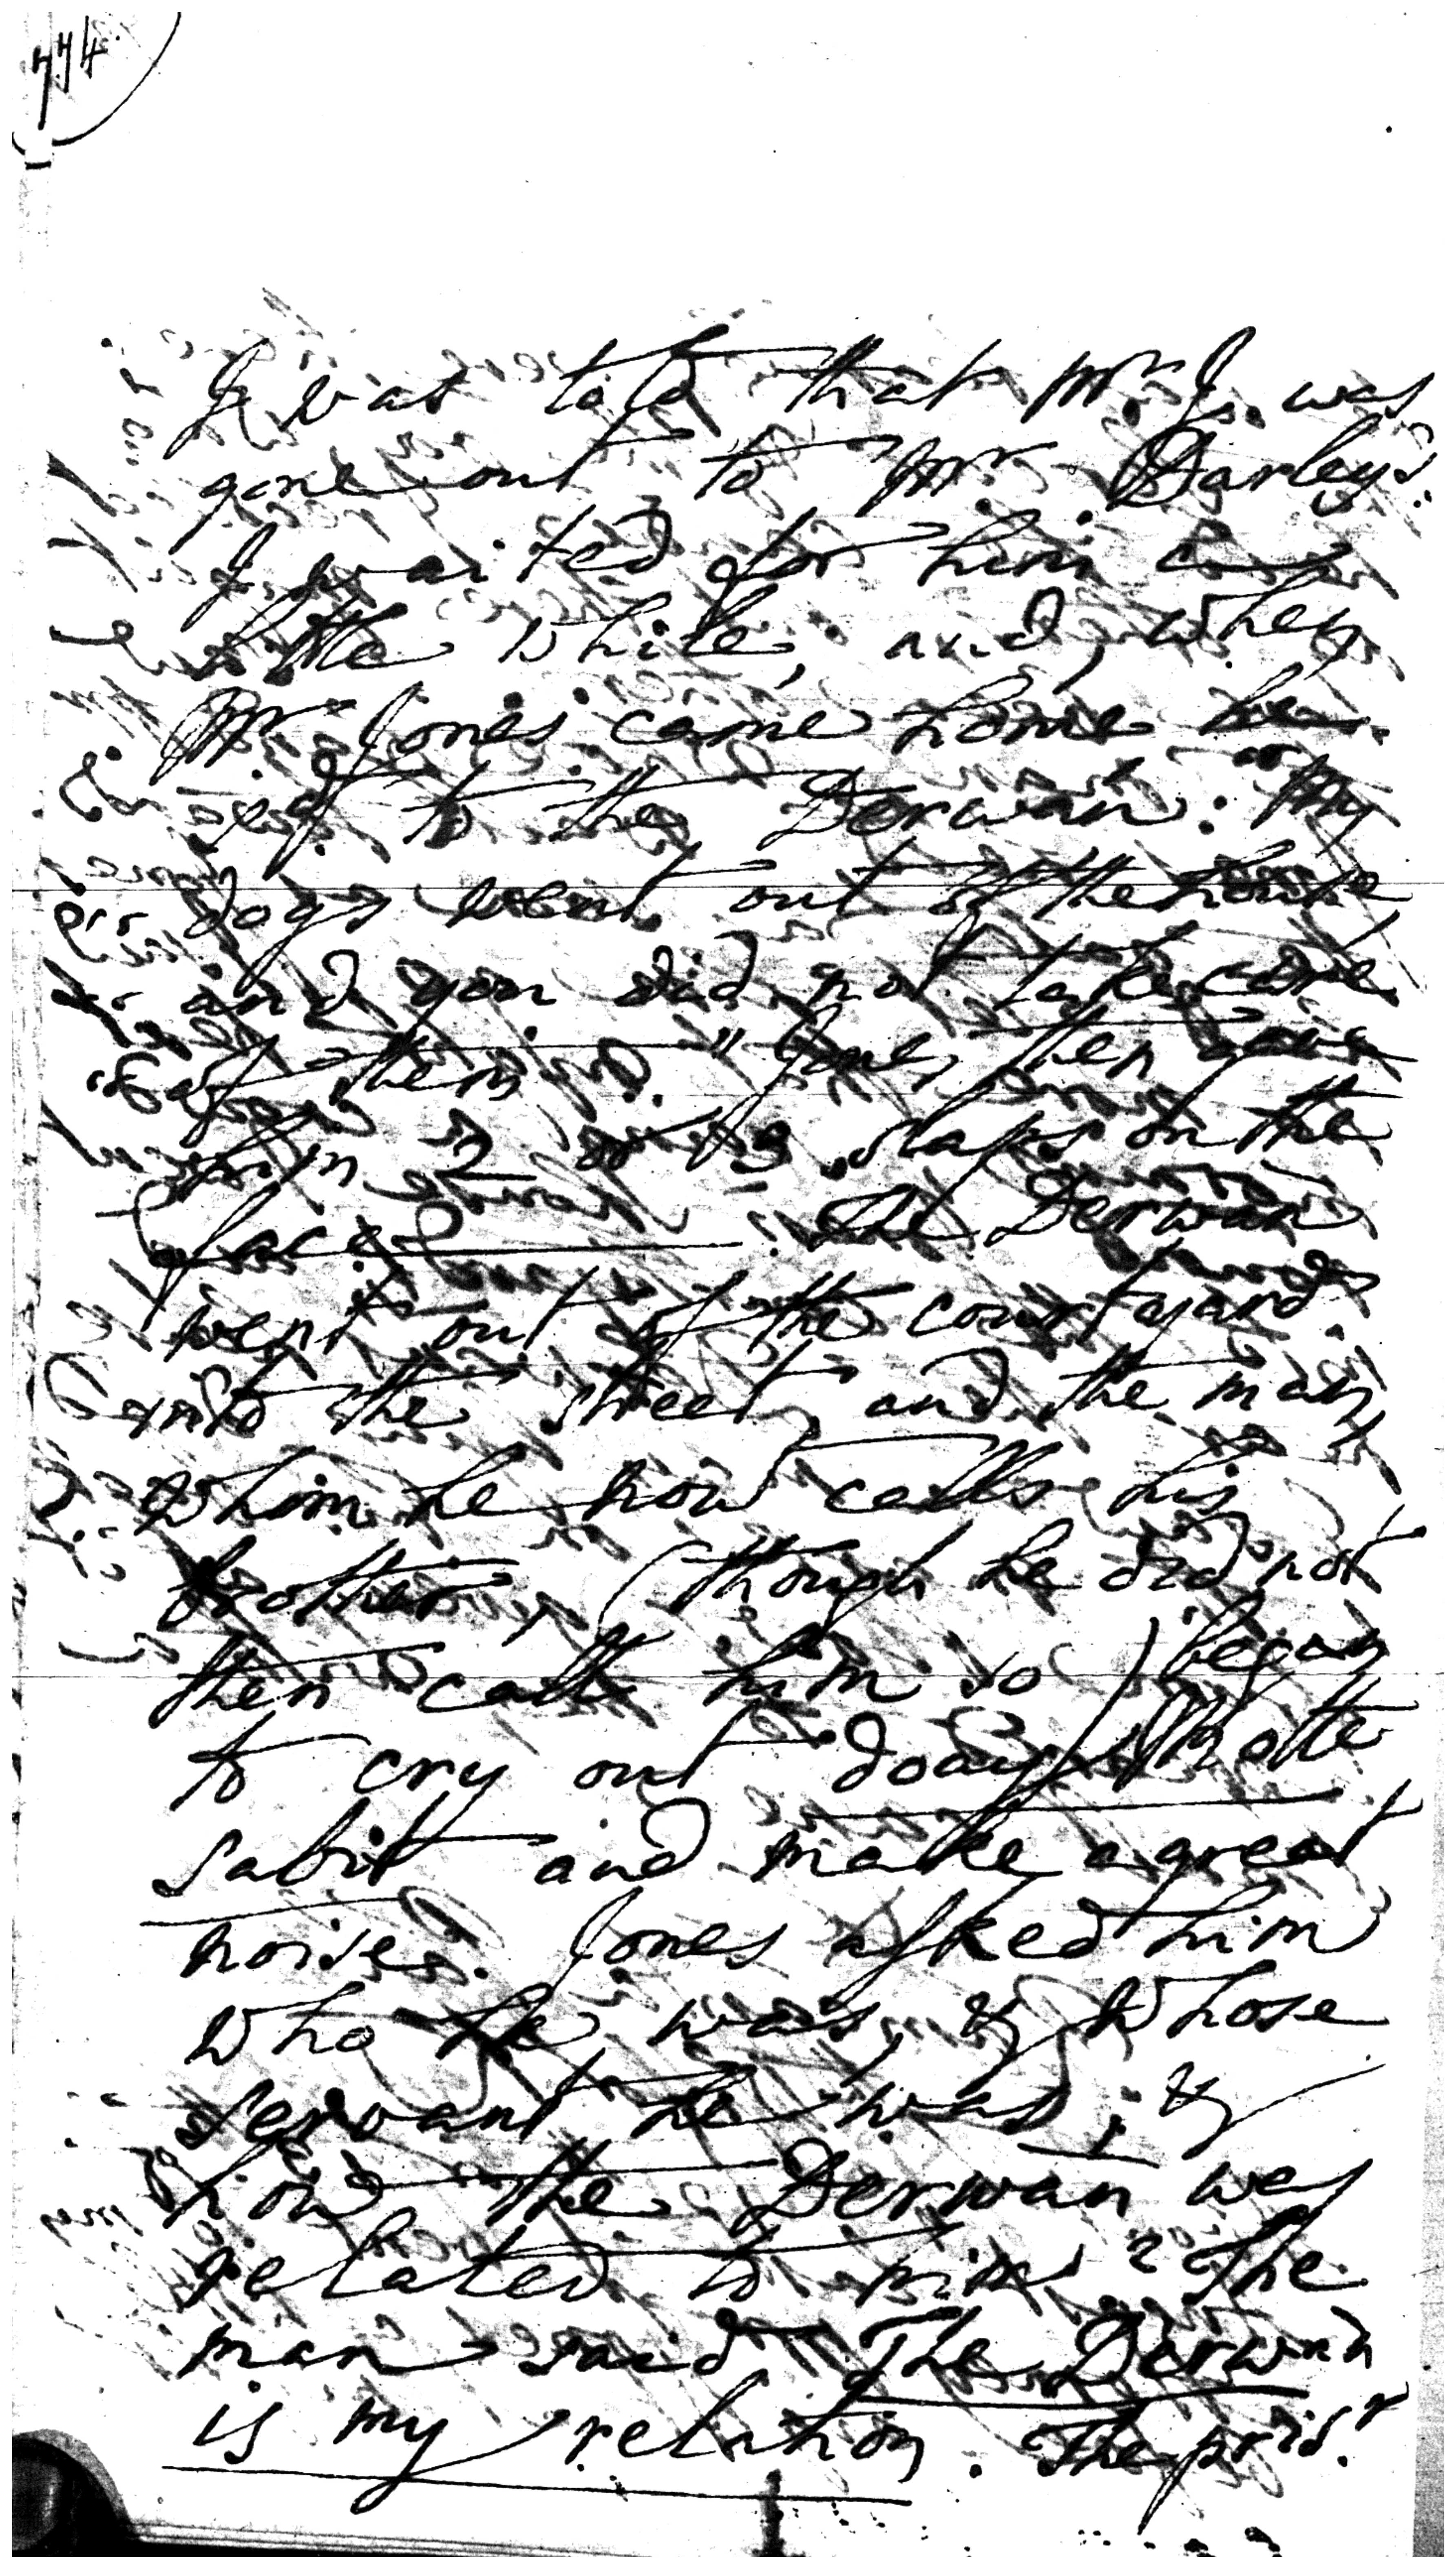 774
I was told that Mr. J. was
gone out to Mr. Darley's.
I waited for him a
little while; and, when
Mr. Jones came home he
said to the Derwan: "My
dogs went out of the house
and you did not take care
of them." Jones then gave
him 2 or 3 slaps on the
face. The Derwan
went out of the courtyard
into the street, and the man
whom he now calls his
brother, (though he did not
then call him so) began
to cry out doay
Sabit and make a great
noise. Jones asked him
who he was, & whose
servant he was; &
how the Derwan was
related to him? The
man said The Derwan
is my relation. The prisr.